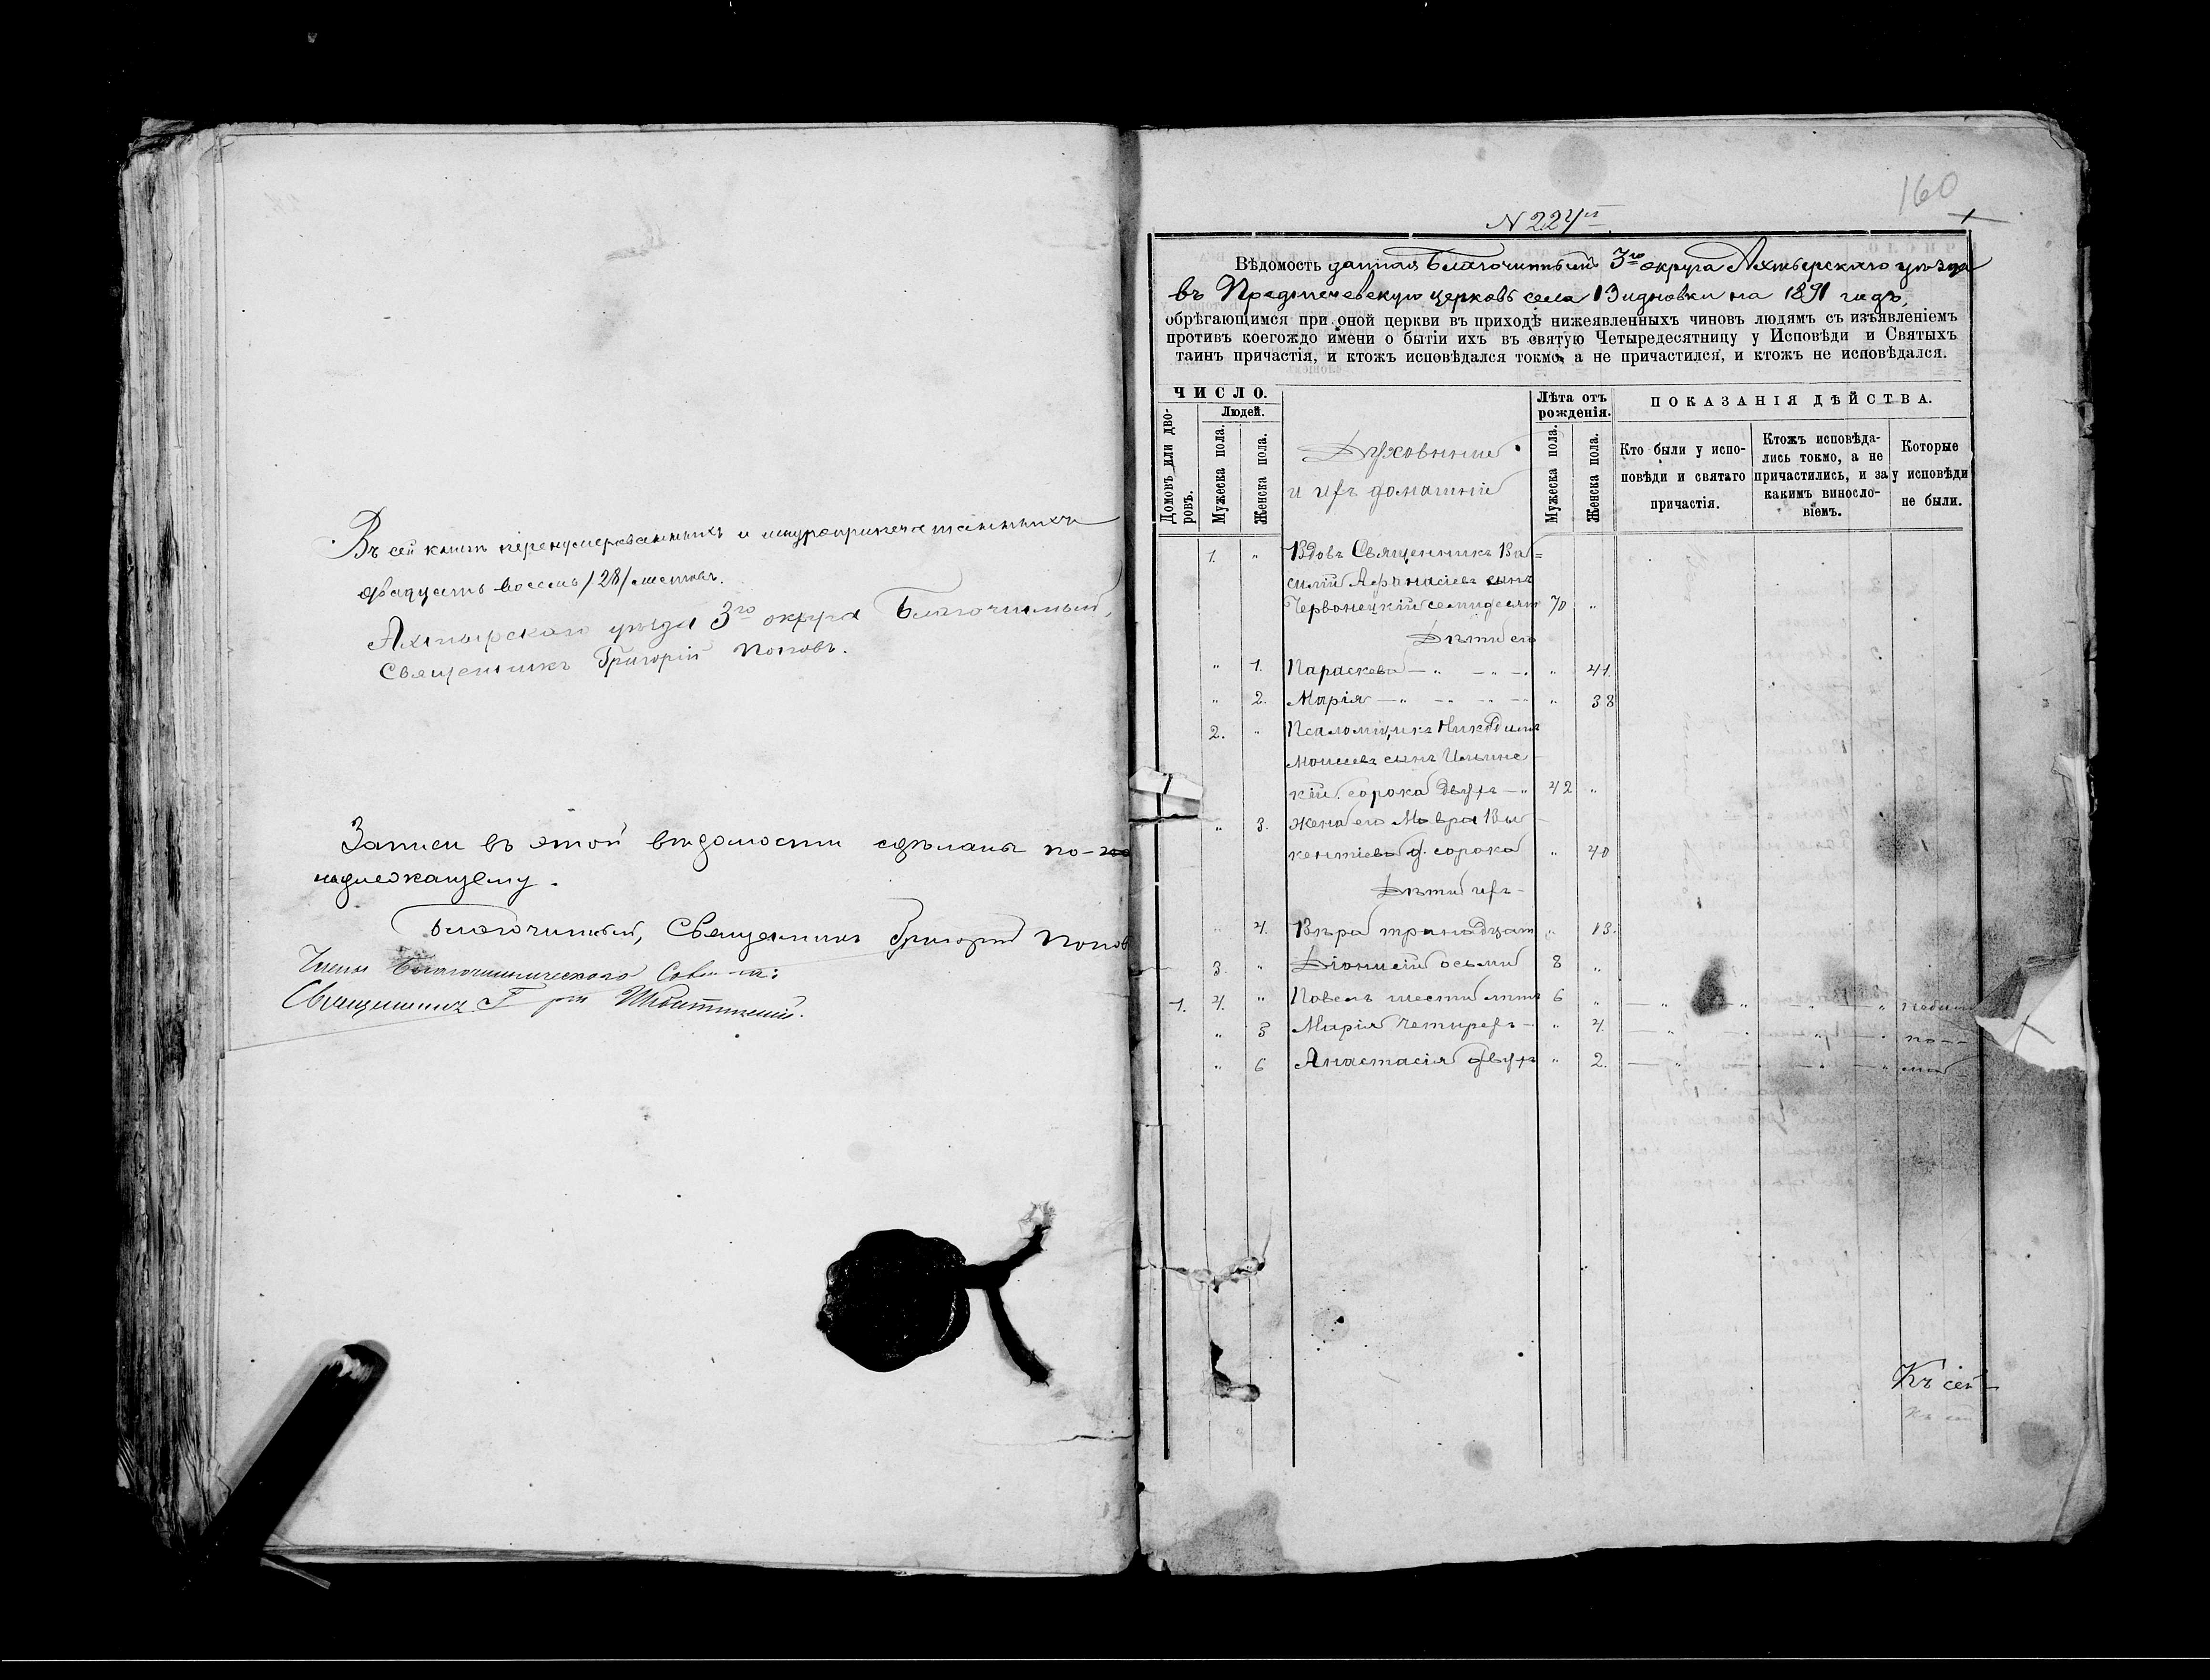 Въ сей книгѣ перенумерованныхъ и шнуроприпечатанныхъ
двадцать восемь /28/ листовъ.
Ахтырскаго уѣзда 3го округа Благочинный,
Священникъ Григорій Поповъ.
Записи въ этой вѣдомости сдѣланы по-
надлежащему.
Благочинный, Священникъ Григорій Поповъ
Члены Благочинническаго Совѣта:
Священникъ
160
N 224й
1
Вѣдомость данная Благочиннымъ 3го округа Ахтырскаго уѣзда
въ Предтечевскую церковь села на 1891 годъ,
обрѣтающимся при оной церкви въ приходѣ нижеявленныхъ чиновъ людямъ съ изъявленіемъ
противъ коегождо имени о бытіи ихъ въ святую Четыредесятницу у Исповѣди и Святыхъ
таинъ причастія, и ктожъ исповѣдался токмо, а не причастился, и ктожъ не исповѣдался.
ЧИСЛО.
Домовъ или дворовъ.
Людей.
Мужеска пола.
Женска пола.
Духовные
и ихъ домашніе
Лѣта отъ
рожденія.
Мужеска пола.
Женска пола.
ПОКАЗАНІЯ ДѢЙСТВА.
Кто были у испо-
повѣди и святаго
причастія.
Ктожъ исповѣда-
лись токмо, а не
причастились, и за
какимъ винosло-
віемъ.
Которые
у исповѣди
не были.
1. " Вдовъ Священникъ Ва=
силій Афанасіевъ сынъ
Червонецкій семидесят 70 "
Дѣти его
" 1. Параскева — " — " — " 41.
" 2. Марія — " — " — " 38
2. " Псаломщикъ Никодимъ
Моисеевъ сынъ Ильинс-
кій сорока двухъ — " 42 "
" 3. Жена его Мавра Ви-
кентіева д. сорока " 40
Дѣти ихъ
" 4. Вѣра тринадцат " 13.
3. " Діонисій осьми 8 "
1. 4. " Павелъ шести лѣтъ 6 "
" 5 Марія четырехъ - " 4. по--
" 6 Анастасія двухъ " 2.
Къ сей
Къ сей